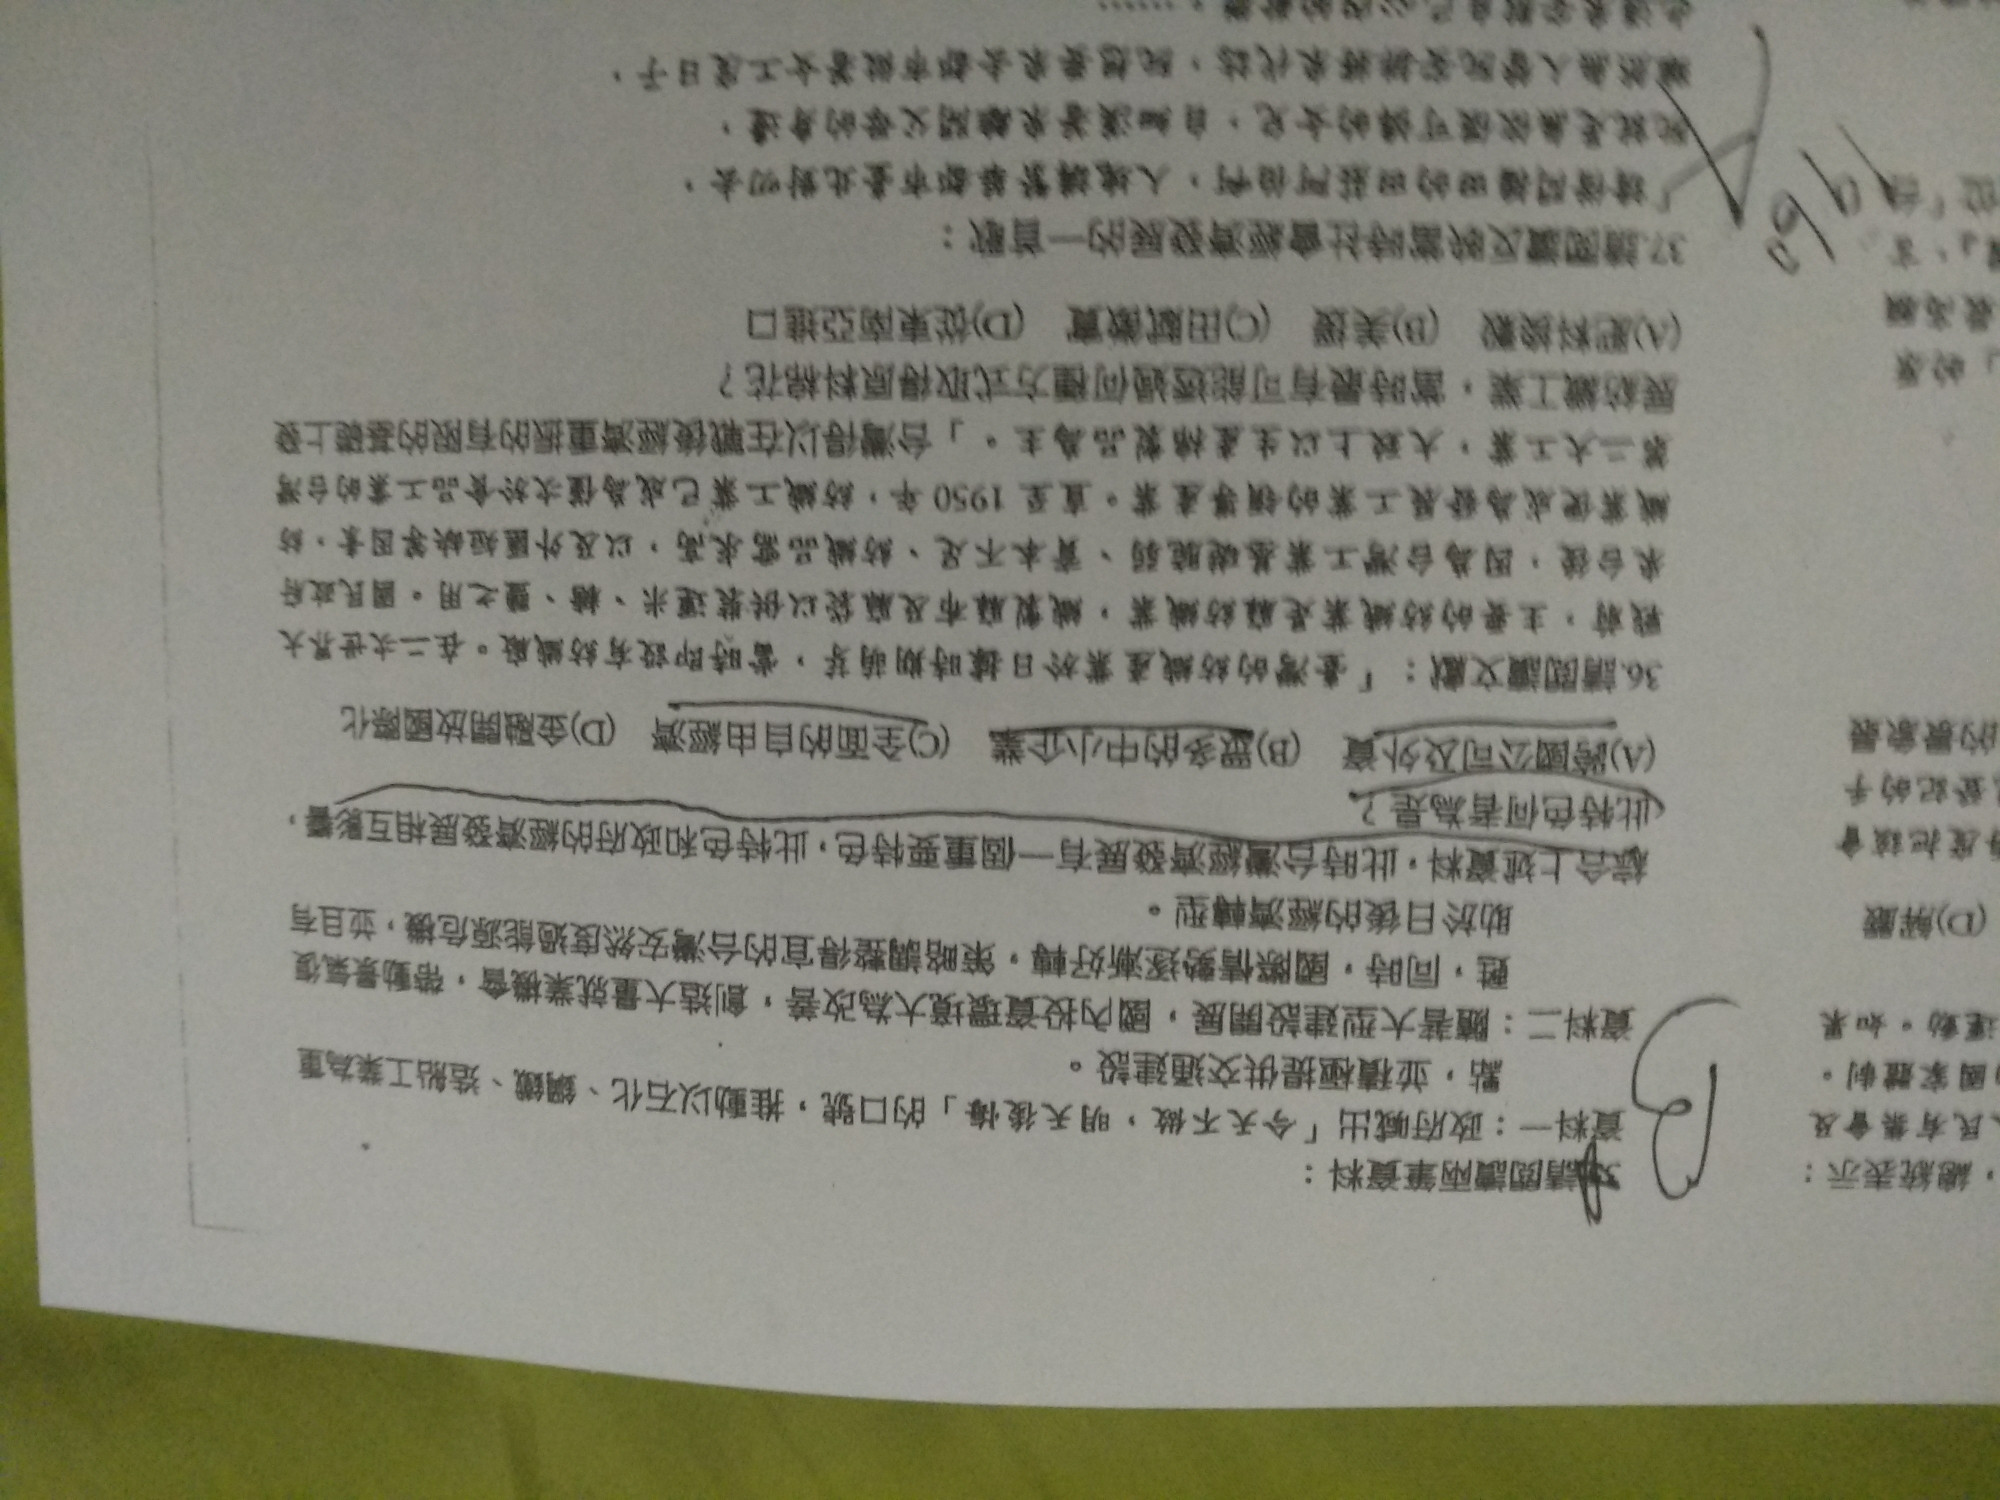 35.請閱讀兩筆資料：
資料一：政府喊出「今天不做，明天後悔」的口號，推動以石化、鋼鐵、造船工業為重
點，並積極提供交通建設。
資料二：隨著大型建設開展，國內投資環境大為改善，創造大量就業機會，帶動景氣復
甦，同時，國際情勢逐漸好轉，策略調整得宜的台灣安然度過能源危機，並且有
助於日後的經濟轉型。
綜合上述資料，此時台灣經濟發展有一個重要特色，此特色和政府的經濟發展相互影響，
此特色何者為是？
(A)跨國公司及外資 (B)眾多的中小企業 (C)全面的自由經濟 (D)金融開放國際化
36.請閱讀文獻：「臺灣的紡織產業於日據時期萌芽，當時即設有紡織廠。在二次世界大
戰前，主要的紡織業是麻紡織業，織製麻布及麻袋以供裝運米、糖、鹽之用。國民政府
來台後，因為台灣工業基礎脆弱、資本不足、紡織品需求高，以及外匯短缺等因素，紡
織業便成為發展工業的領導產業。直至 1950 年，紡織工業已成為僅次於食品工業的台灣
第二大工業，大致上以生產棉製品為主。」台灣得以在戰後經濟重振的有限的基礎上發
展紡織工業，當時最有可能透過何種方式取得原料棉花？
(A)肥料換穀 (B)美援 (C)田賦徵實 (D)從東南亞進口
37.請閱讀反映當時社會經濟發展的一首歌：
「請借問播田的田莊阿伯啊，人塊講繁華都市臺北對叨去，
阮就是無依偎可憐的女兒，自細漢著來離開父母的身邊，
雖然無人替阮安排將來代誌，阮想要來去都市做著女工度日子，
也通來安慰自己心內的稀微，……
1960
A
B
(D)解嚴
，總統表示：
國家體制。
運動。如果
的最意最
登記的手